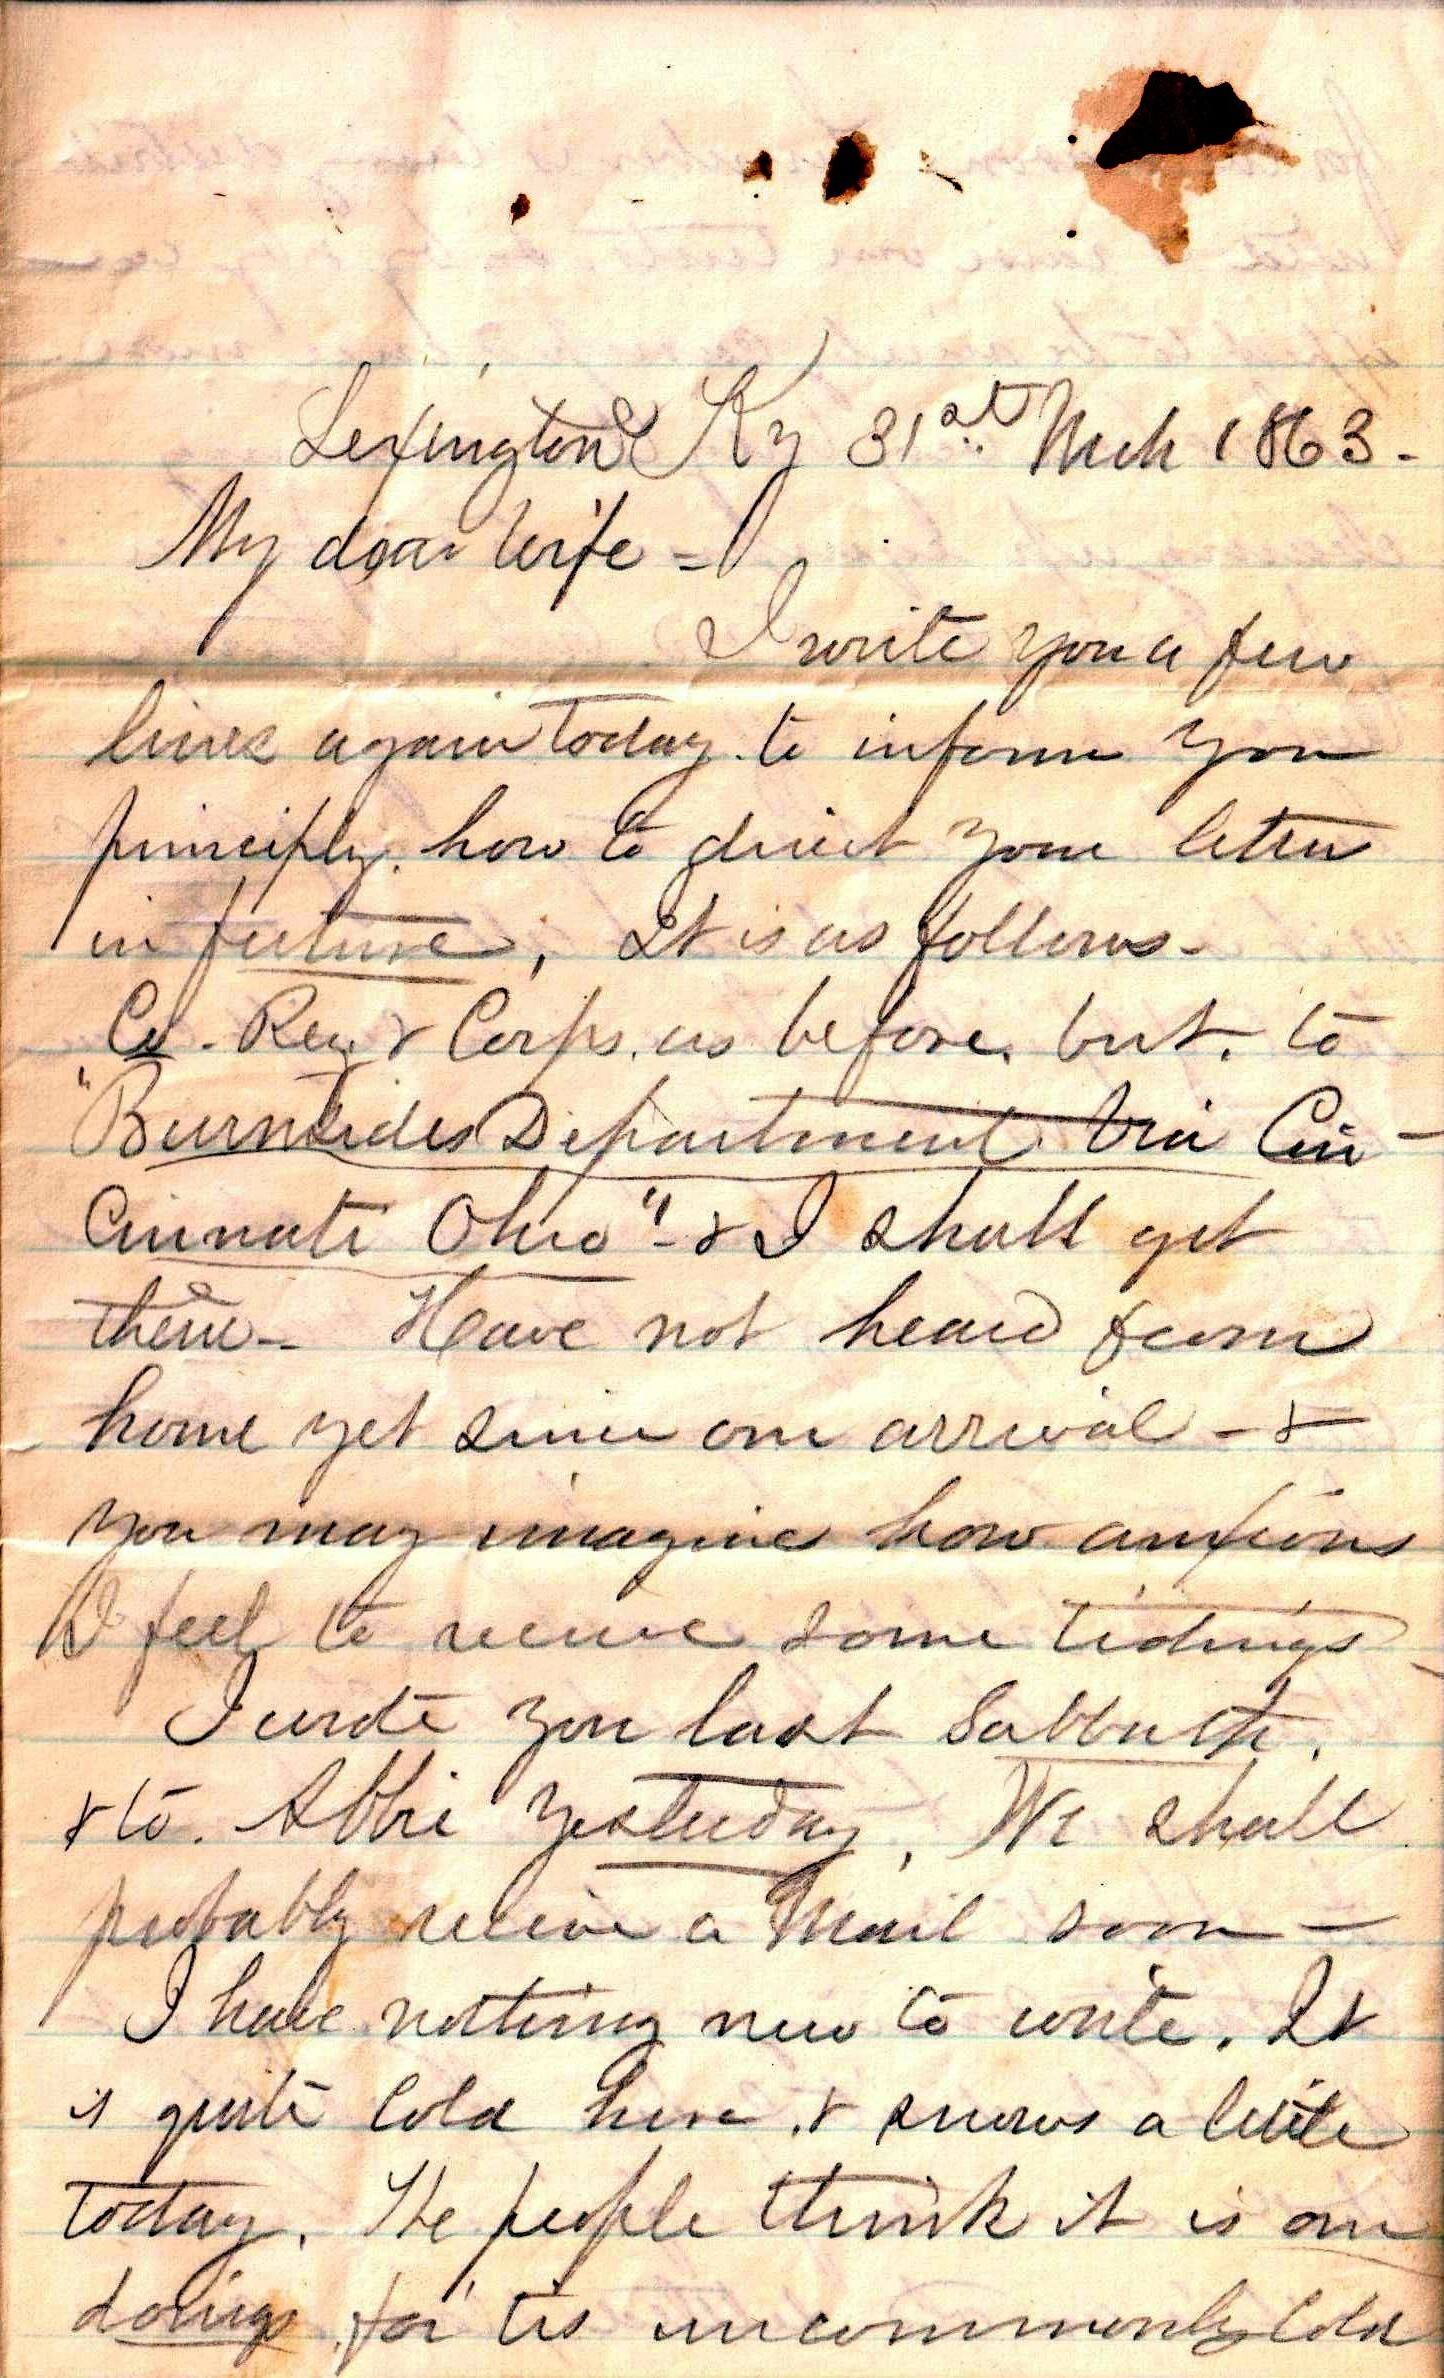 Lexington Ky 31st Mch 1863-
My dear Wife -
I write you a few
lines again today. to inform you
principly. how to direct your letters
in future, It is as follows-
Co. Reg & Corps. as before. but. to
"Burnsides Department Via Cin-
Cinnati Ohio" - & I shall get
them - Have not heard from
home yet since our arrival - &
you may imagine how anxious
I feel to receive some tidings -
I wrote you last Sabbath.
& to. Abbie Yesterday. We shall
probably recive a Mail soon -
I have nothing new to write. It
is quite Cold here. & snows a little
today. The people think it is our
doings for tis uncommonly Cold